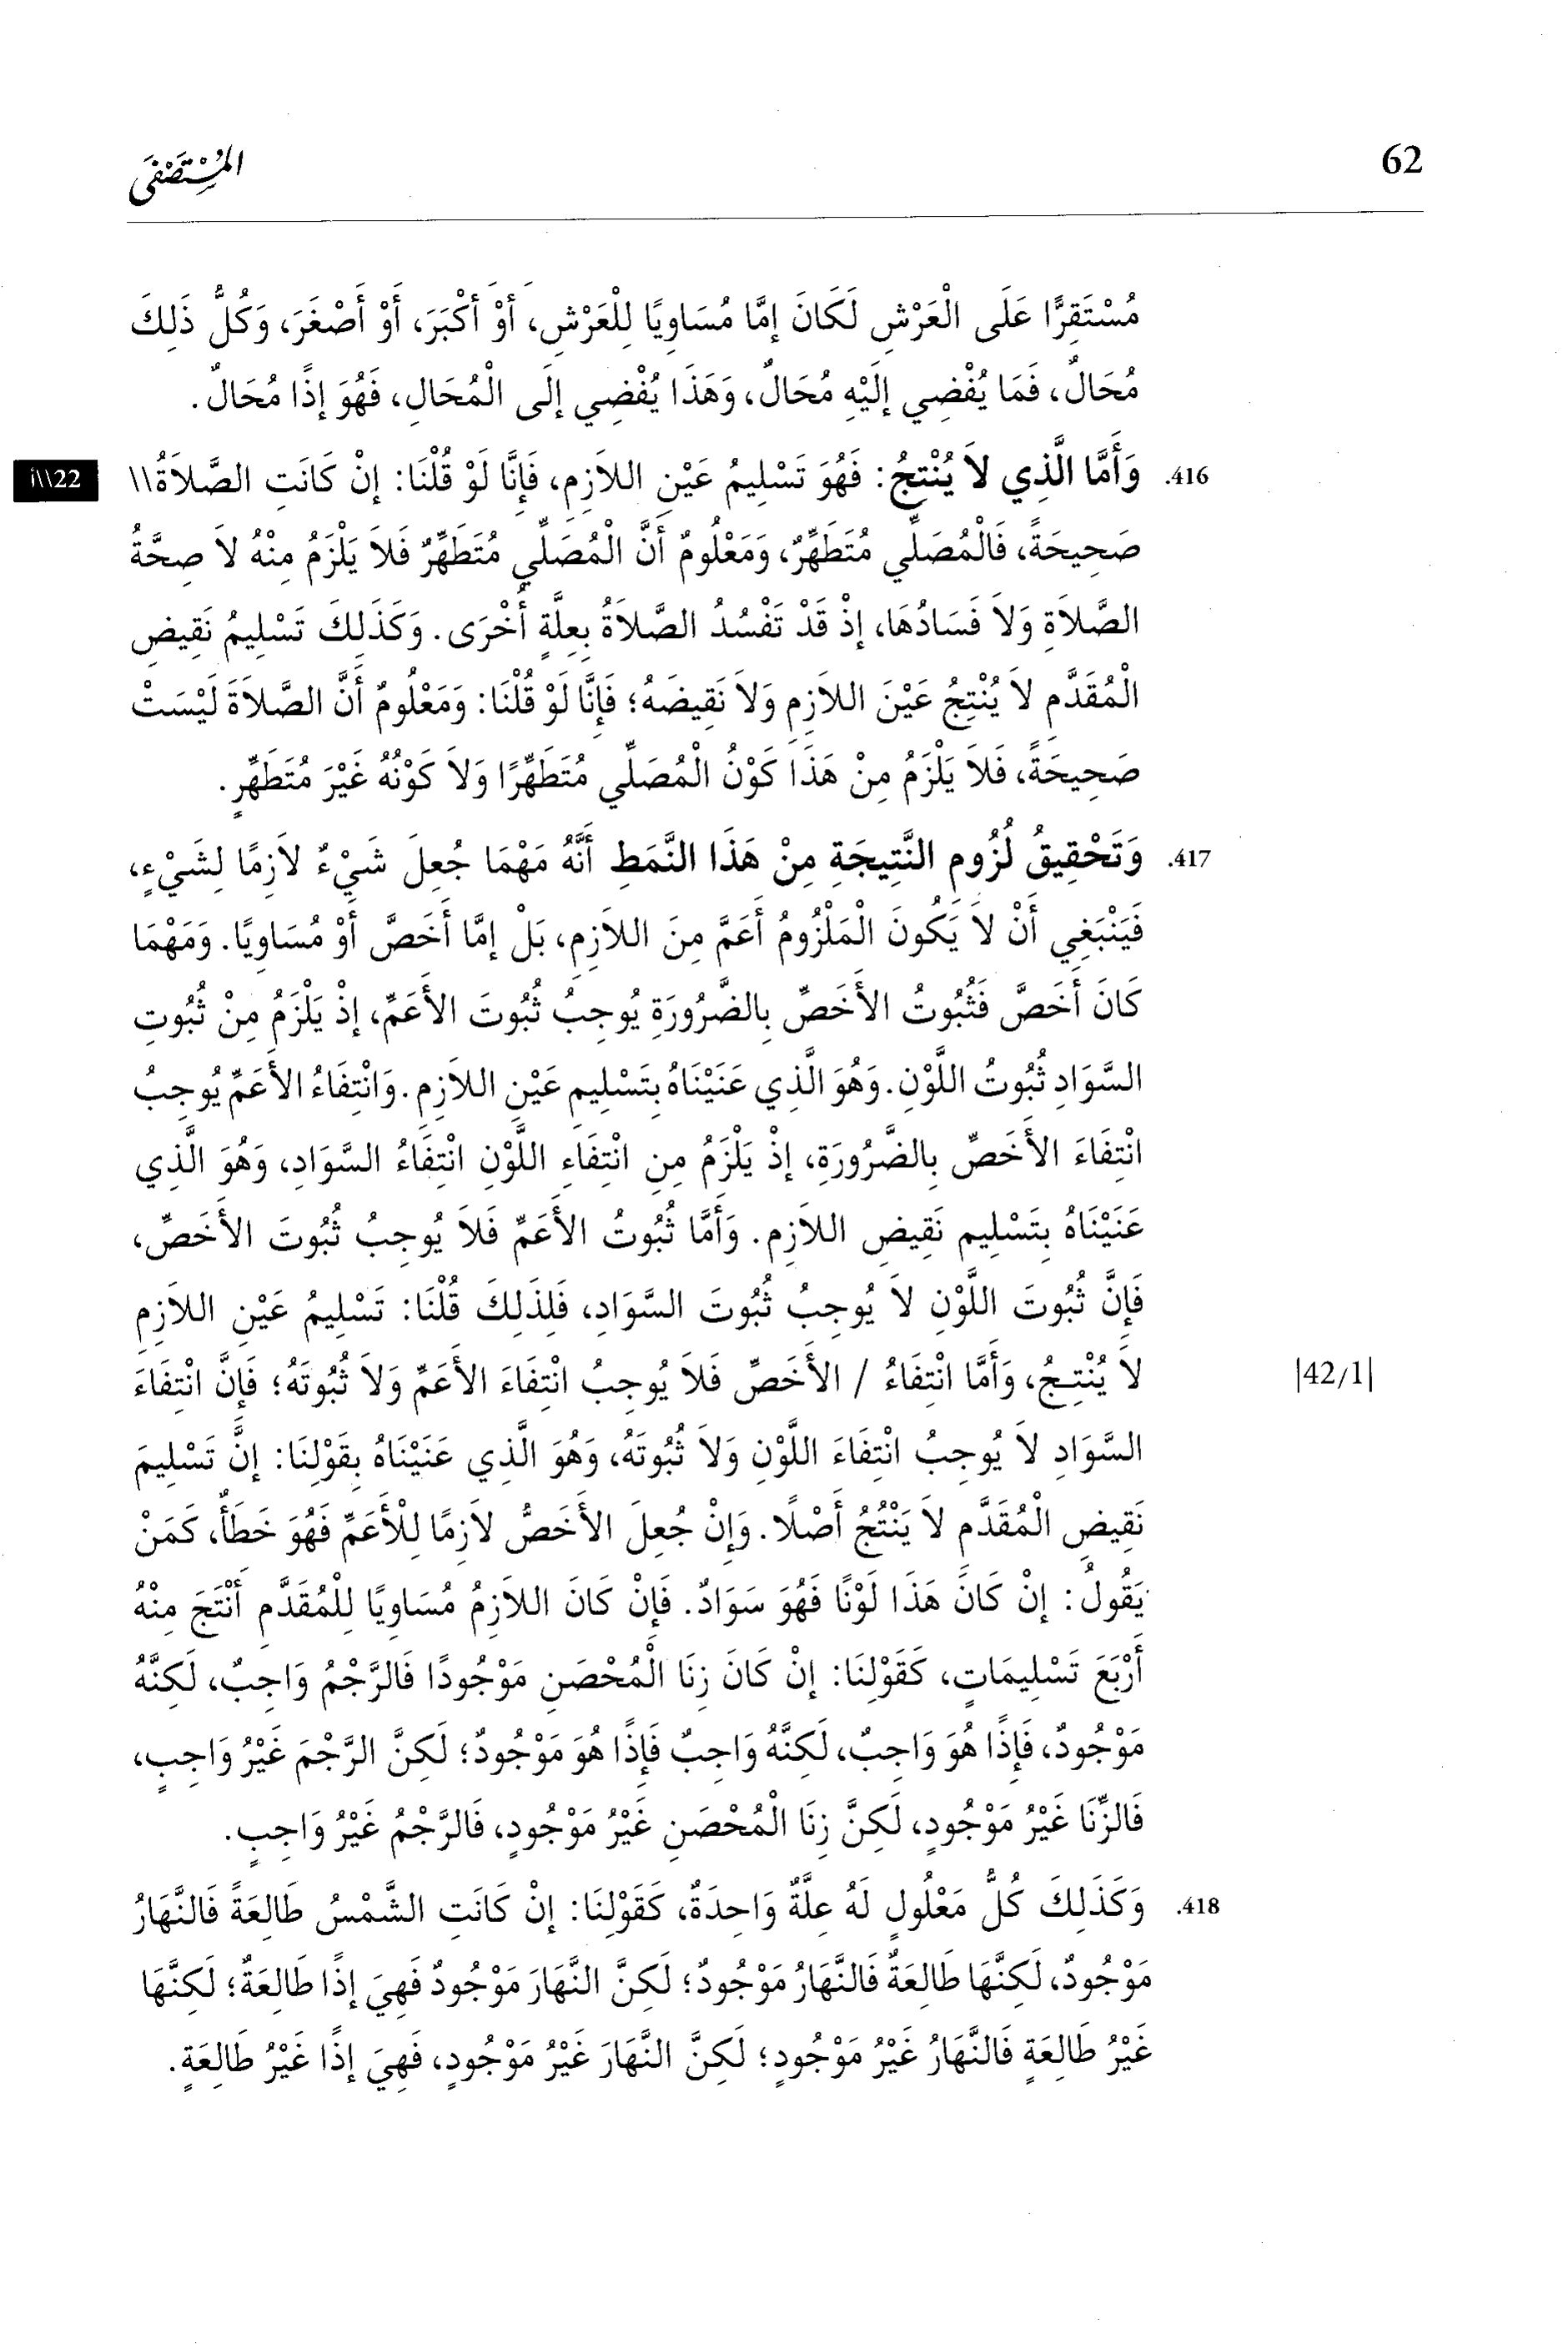 62
المُسْتَصْفَى
مُسْتَقِرًّا عَلَى الْعَرْشِ لَكَانَ إِمَّا مُسَاوِيًا لِلْعَرْشِ، أَوْ أَكْبَرَ، أَوْ أَصْغَرَ، وَكُلُّ ذَلِكَ
مُحَالٌ، فَمَا يُفْضِي إِلَيْهِ مُحَالٌ، وَهَذَا يُفْضِي إِلَى الْمُحَالِ، فَهُوَ إِذًا مُحَالٌ.
416. وَأَمَّا الَّذِي لاَ يُنْتِجُ: فَهُوَ تَسْلِيمُ عَيْنِ اللاَزِمِ، فَإِنَّا لَوْ قُلْنَا: إِنْ كَانَتِ الصَّلاَةُ\\ 22\\أ
صَحِيحَةً، فَالْمُصَلِّي مُتَطَهِّرٌ، وَمَعْلُومٌ أَنَّ الْمُصَلِّي مُتَطَهِّرٌ فَلاَ يَلْزَمُ مِنْهُ لاَ صِحَّةُ
الصَّلاَةِ وَلاَ فَسَادُهَا، إِذْ قَدْ تَفْسُدُ الصَّلاَةُ بِعِلَّةٍ أُخْرَى. وَكَذَلِكَ تَسْلِيمُ نَقِيضِ
الْمُقَدَّمِ لاَ يُنْتِجُ عَيْنَ اللاَزِمِ وَلاَ نَقِيضَهُ؛ فَإِنَّا لَوْ قُلْنَا: وَمَعْلُومٌ أَنَّ الصَّلاَةَ لَيْسَتْ
صَحِيحَةً، فَلاَ يَلْزَمُ مِنْ هَذَا كَوْنُ الْمُصَلِّي مُتَطَهِّرًا وَلاَ كَوْنُهُ غَيْرَ مُتَطَهِّرٍ.
417. وَتَحْقِيقُ لُزُومِ النَّتِيجَةِ مِنْ هَذَا النَّمَطِ أَنَّهُ مَهْمَا جُعِلَ شَيْءٌ لاَزِمًا لِشَيْءٍ،
فَيَنْبَغِي أَنْ لاَ يَكُونَ الْمَلْزُومُ أَعَمَّ مِنَ اللاَزِمِ، بَلْ إِمَّا أَخَصَّ أَوْ مُسَاوِيًا. وَمَهْمَا
كَانَ أَخَصَّ فَثُبُوتُ الأَخَصِّ بِالضَّرُورَةِ يُوجِبُ ثُبُوتَ الأَعَمِّ، إِذْ يَلْزَمُ مِنْ ثُبُوتِ
السَّوَادِ ثُبُوتُ اللَّوْنِ. وَهُوَ الَّذِي عَنَيْنَاهُ بِتَسْلِيمِ عَيْنِ اللاَزِمِ. وَانْتِفَاءُ الأَعَمِّ يُوجِبُ
انْتِفَاءَ الأَخَصِّ بِالضَّرُورَةِ، إِذْ يَلْزَمُ مِنِ انْتِفَاءِ اللَّوْنِ انْتِفَاءُ السَّوَادِ، وَهُوَ الَّذِي
عَنَيْنَاهُ بِتَسْلِيمِ نَقِيضِ اللاَزِمِ. وَأَمَّا ثُبُوتُ الأَعَمِّ فَلاَ يُوجِبُ ثُبُوتَ الأَخَصِّ،
فَإِنَّ ثُبُوتَ اللَّوْنِ لاَ يُوجِبُ ثُبُوتَ السَّوَادِ، فَلِذَلِكَ قُلْنَا: تَسْلِيمُ عَيْنِ اللاَزِمِ
لاَ يُنْتِجُ، وَأَمَّا انْتِفَاءُ / الأَخَصِّ فَلاَ يُوجِبُ انْتِفَاءَ الأَعَمِّ وَلاَ ثُبُوتَهُ؛ فَإِنَّ انْتِفَاءَ |42/1|
السَّوَادِ لاَ يُوجِبُ انْتِفَاءَ اللَّوْنِ وَلاَ ثُبُوتَهُ، وَهُوَ الَّذِي عَنَيْنَاهُ بِقَوْلِنَا: إِنَّ تَسْلِيمَ
نَقِيضِ الْمُقَدَّمِ لاَ يَنْتُجُ أَصْلًا. وَإِنْ جُعِلَ الأَخَصُّ لاَزِمًا لِلْأَعَمِّ فَهُوَ خَطَأٌ، كَمَنْ
يَقُولُ: إِنْ كَانَ هَذَا لَوْنًا فَهُوَ سَوَادٌ. فَإِنْ كَانَ اللاَزِمُ مُسَاوِيًا لِلْمُقَدَّمِ أَنْتَجَ مِنْهُ
أَرْبَعَ تَسْلِيمَاتٍ، كَقَوْلِنَا: إِنْ كَانَ زِنَا الْمُحْصَنِ مَوْجُودًا فَالرَّجْمُ وَاجِبٌ، لَكِنَّهُ
مَوْجُودٌ، فَإِذًا هُوَ وَاجِبٌ، لَكِنَّهُ وَاجِبٌ فَإِذًا هُوَ مَوْجُودٌ؛ لَكِنَّ الرَّجْمَ غَيْرُ وَاجِبٍ،
فَالزِّنَا غَيْرُ مَوْجُودٍ، لَكِنَّ زِنَا الْمُحْصَنِ غَيْرُ مَوْجُودٍ، فَالرَّجْمُ غَيْرُ وَاجِبٍ.
418. وَكَذَلِكَ كُلُّ مَعْلُولٍ لَهُ عِلَّةٌ وَاحِدَةٌ، كَقَوْلِنَا: إِنْ كَانَتِ الشَّمْسُ طَالِعَةً فَالنَّهَارُ
مَوْجُودٌ، لَكِنَّهَا طَالِعَةٌ فَالنَّهَارُ مَوْجُودٌ؛ لَكِنَّ النَّهَارَ مَوْجُودٌ فَهِيَ إِذًا طَالِعَةٌ؛ لَكِنَّهَا
غَيْرُ طَالِعَةٍ فَالنَّهَارُ غَيْرُ مَوْجُودٍ؛ لَكِنَّ النَّهَارَ غَيْرُ مَوْجُودٍ، فَهِيَ إِذًا غَيْرُ طَالِعَةٍ.